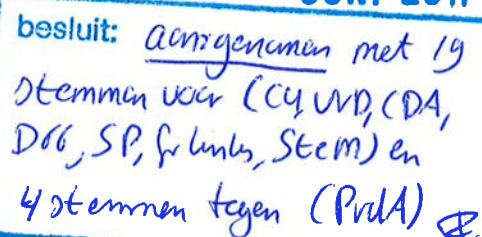 besluit: aangenomen met 19
stemmen voor (CU, VVD, CDA,
D66, SP, GrLinks, Stem) en
4 stemmen tegen (PvdA)